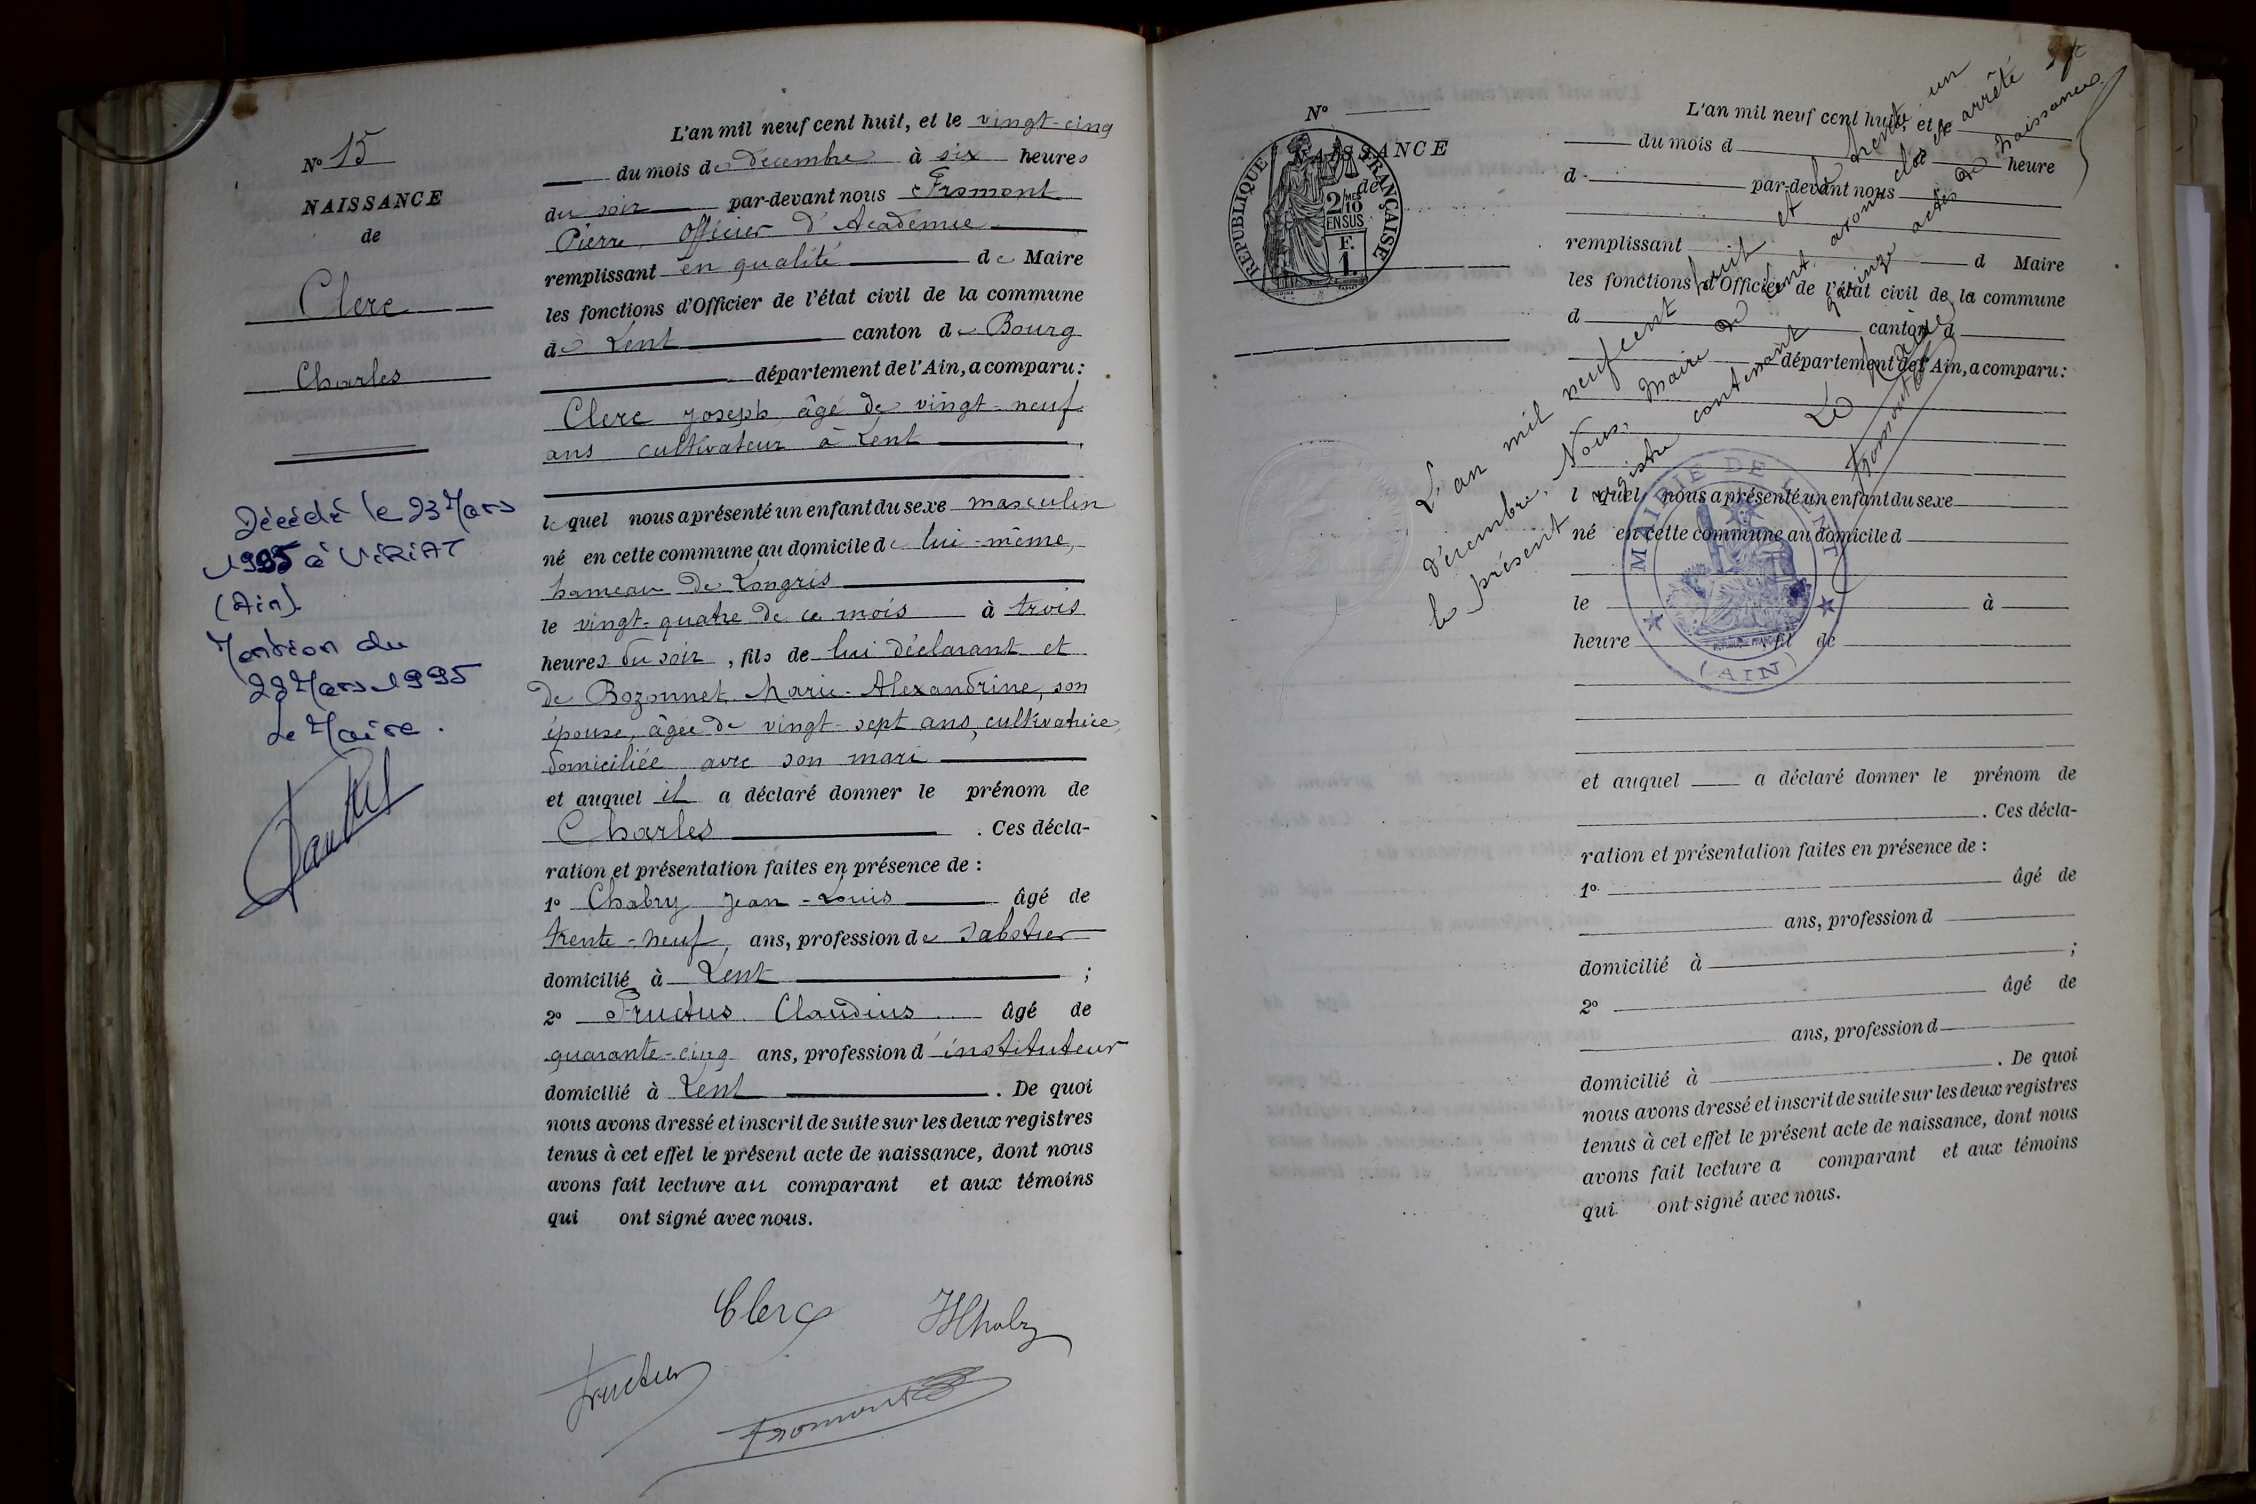 N° 15
NAISSANCE
de
Clerc
Charles
Décédé le 23 Mars
1995 à VIRIAT
(Ain).
Mention du
28 Mars 1995
Le Maire.
L'an mil neuf cent huit, et le vingt-cinq
du mois de décembre à six heures
du soir par-devant nous Fromont
Pierre, Officier d'Académie
remplissant en qualité de Maire
les fonctions d'Officier de l'état civil de la commune
de Lent canton de Bourg
département de l'Ain, a comparu:
Clerc Joseph âgé de vingt-neuf
ans cultivateur à Lent
lequel nous a présenté un enfant du sexe masculin
né en cette commune au domicile de lui-même,
hameau de Longris
le vingt-quatre de ce mois à trois
heures du soir, fils de lui déclarant et
de Bozonnet Marie-Alexandrine, son
épouse, âgée de vingt-sept ans, cultivatrice,
domiciliée avec son mari
et auquel il a déclaré donner le prénom de
Charles. Ces décla-
ration et présentation faites en présence de :
1° Chabry Jean-Louis âgé de
trente-neuf ans, profession de sabotier
domicilié à Lent ;
2° Fructus Claudius âgé de
quarante-cinq ans, profession d'instituteur
domicilié à Lent. De quoi
nous avons dressé et inscrit de suite sur les deux registres
tenus à cet effet le présent acte de naissance, dont nous
avons fait lecture au comparant et aux témoins
qui ont signé avec nous.
Clerc JLChabry
Fructus
Fromont
N°
NAISSANCE
de
RÉPUBLIQUE FRANÇAISE
2/10
EN SUS
F.
1.
L'an mil neuf cent huit, et le
du mois d à heure
d par-devant nous
remplissant d Maire
les fonctions d'Officier de l'état civil de la commune
d canton d
département de l'Ain, a comparu:
l quel nous a présenté un enfant du sexe
né en cette commune au domicile d
le à
heure fil de
et auquel a déclaré donner le prénom de
. Ces décla-
ration et présentation faites en présence de :
1° âgé de
ans, profession d
domicilié à ;
2° âgé de
ans, profession d
domicilié à . De quoi
nous avons dressé et inscrit de suite sur les deux registres
tenus à cet effet le présent acte de naissance, dont nous
avons fait lecture a comparant et aux témoins
qui ont signé avec nous.
L'an mil neuf cent huit et le trente un
décembre, Nous, Maire de Lent, avons clos et arrêté
le présent registre contenant quinze actes de naissances.
Le Maire
Fromont
MAIRIE DE LENT
(AIN)